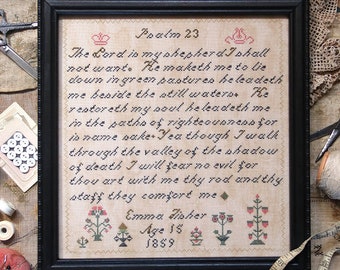 Psalm 23
The Lord is my shepherd I shall
not want. He maketh me to lie
down in green pastures he leadeth
me beside the still waters. He
restoreth my soul he leadeth me
in the paths of righteousness for
is name sake. Yea though I walk
through the valley of the shadow
of death I will fear no evil for
thou art with me thy rod and thy
staff they comfort me
Emma Fisher
Age 15
1859